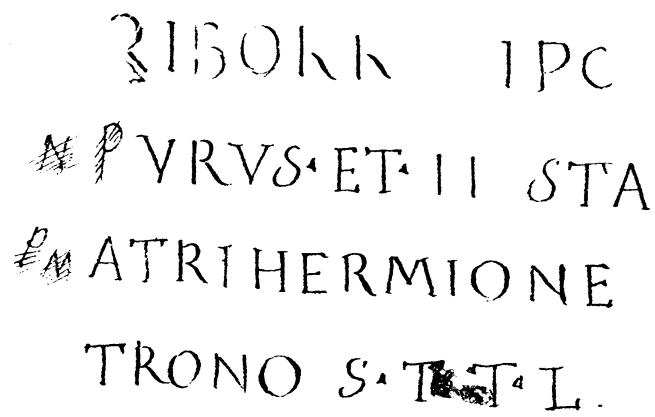 IPC
PVRVS·ET·II STA
ATRIHERMIONE
TRONO S·T·T·L.